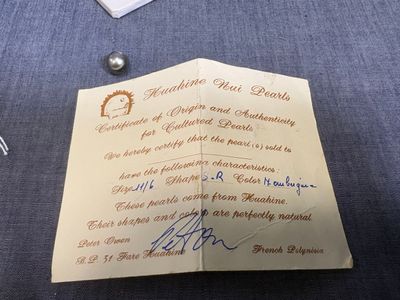 Huahine Nui Pearls
Certificate of Origin and Authenticity
for Cultured Pearls
We hereby certify that the pearl (s) sold to
have the following characteristics :
Size 11/6 Shape S-R Color Aubergine
These pearls come from Huahine.
Their shapes and colors are perfectly natural
Peter Owen
B.P. 51 Fare Huahine French Polynesia